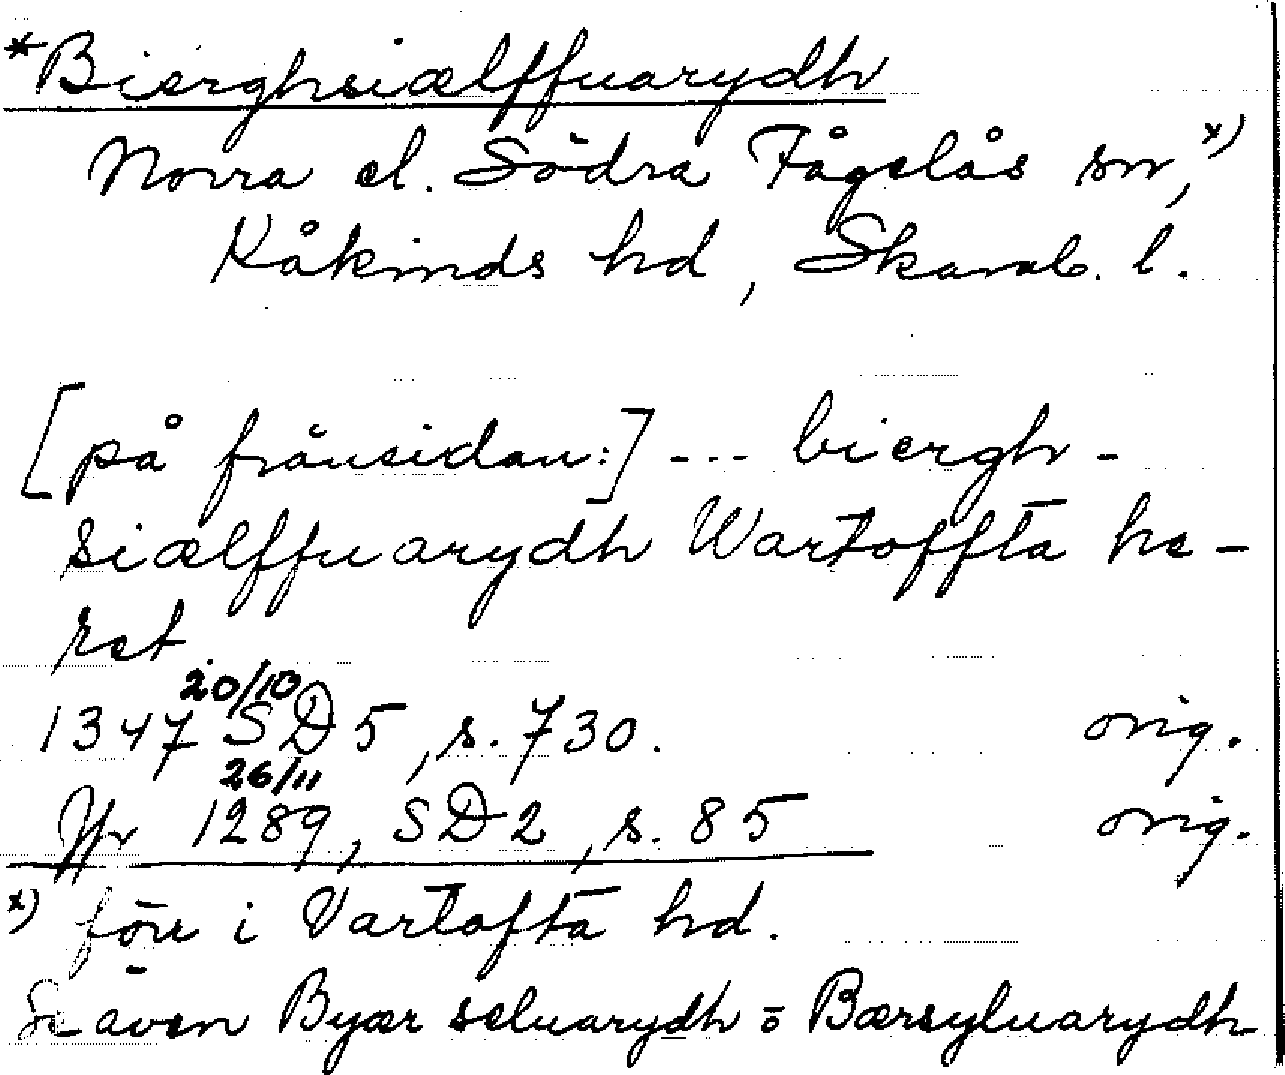 *Bierghsiælffuarydh
Norra el. Södra Fågelås sn, x)
Kåkinds hd, Skarab. l.
[på frånsidan:] --- biergh-
siælffuarydh Wartoffta he-
ret
1347 20/10 SD 5, s. 730. orig.
Jfr 1289 26/11, SD 2, s. 85 orig.
x) förr i Vartofta hd.
Se även Byær seluarydh o Bærsyluarydh